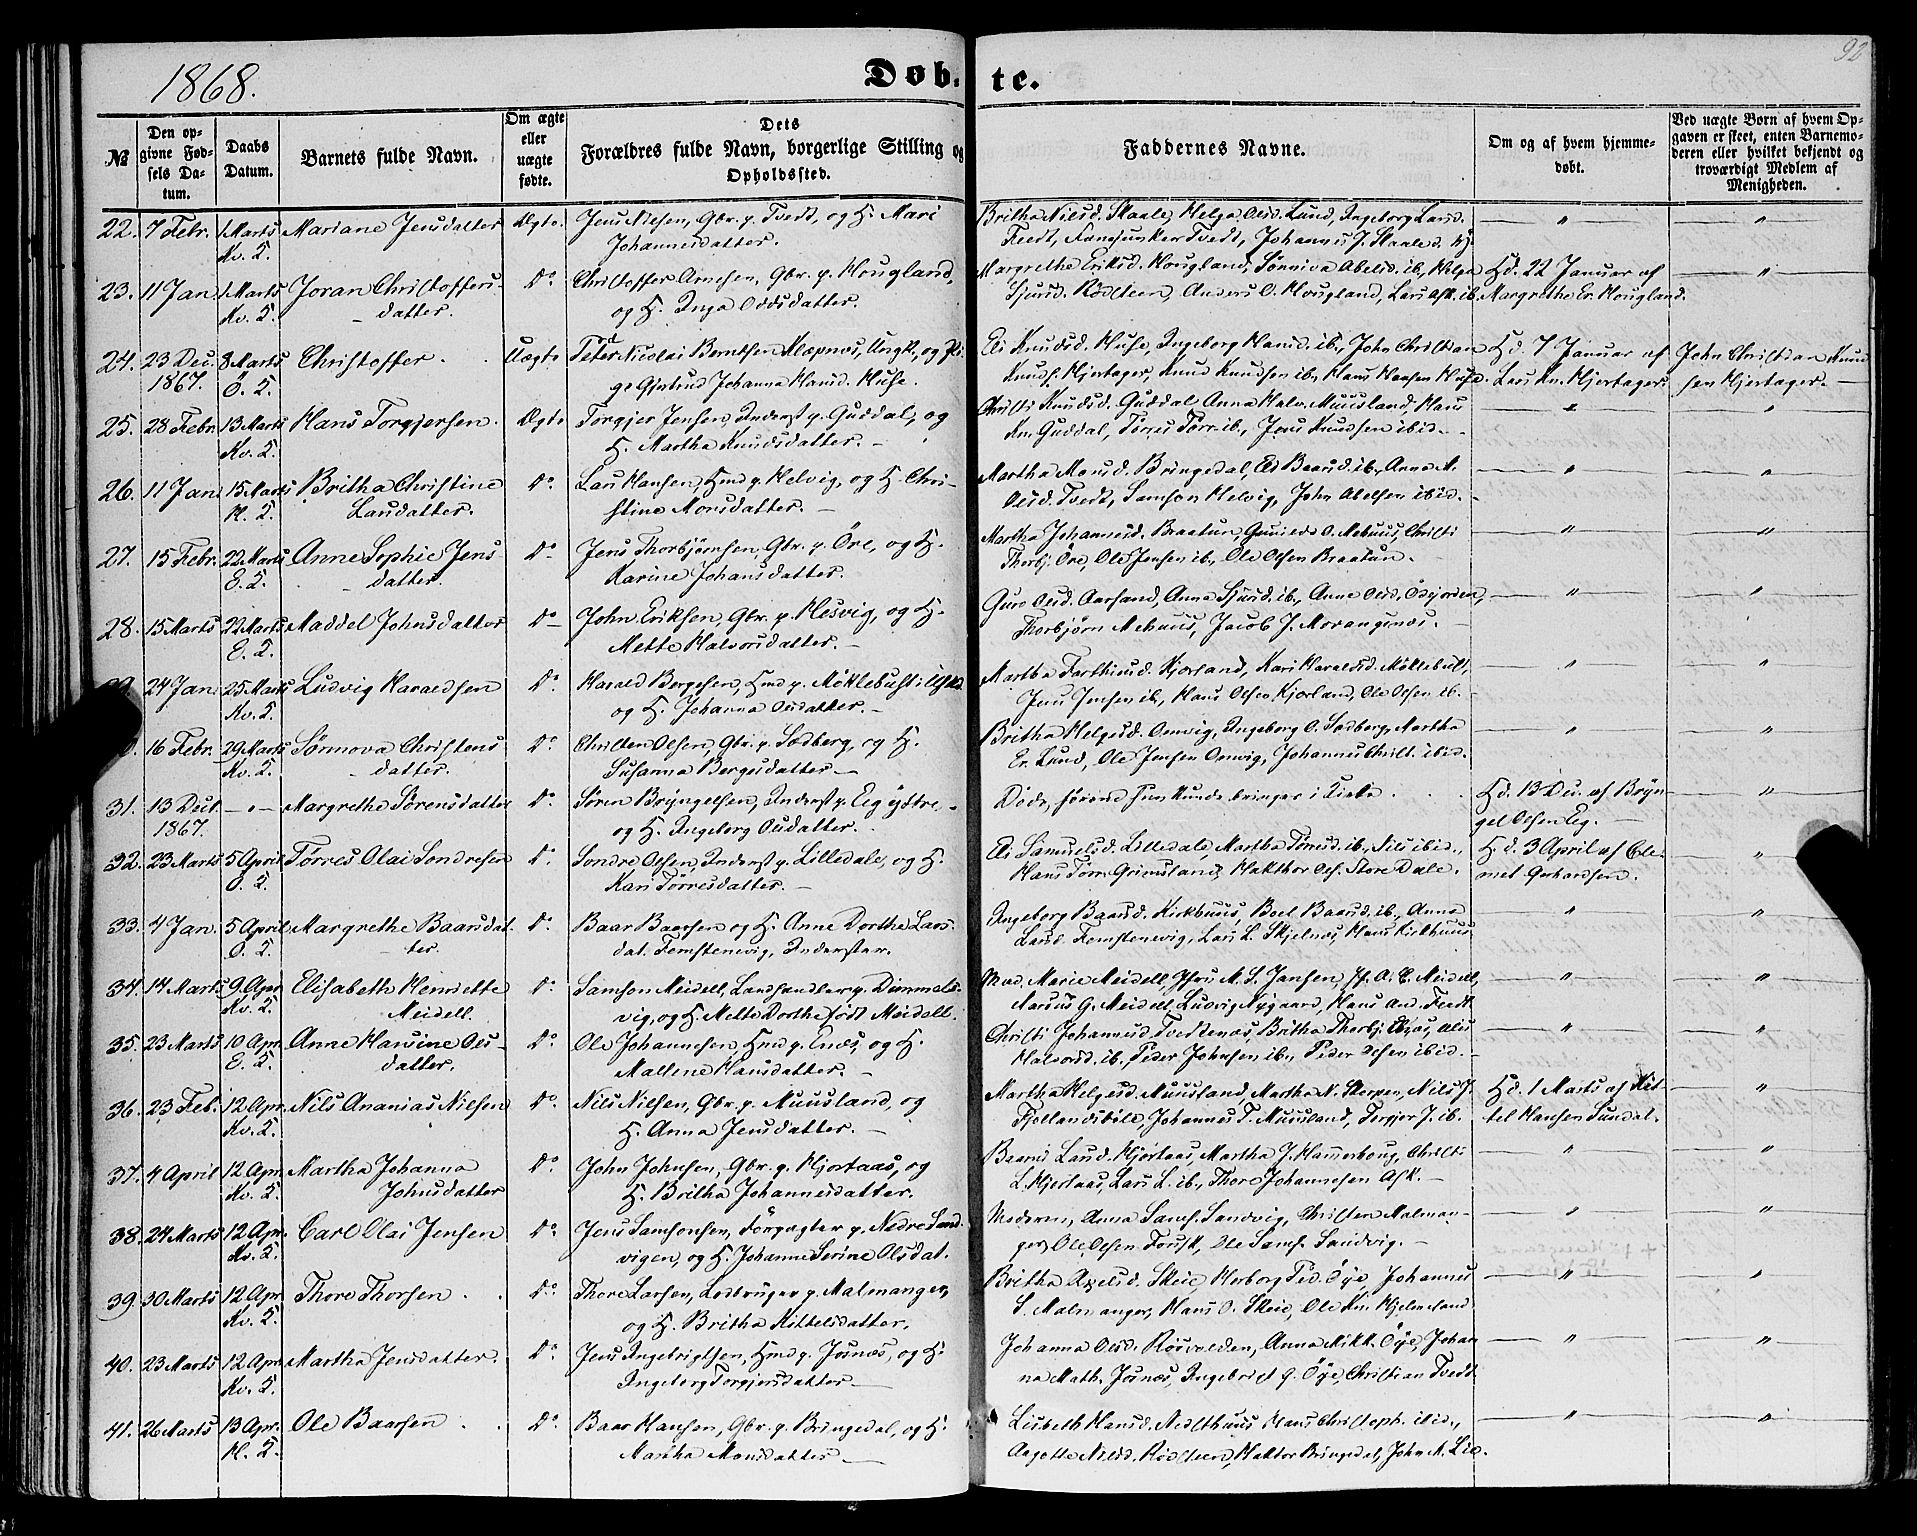 92
1868.
Døb- te.
№
Den opgivne Fødsels Datum.
Daabs Datum.
Barnets fulde Navn.
Om ægte eller uægte fødte.
Dets Forældres fulde Navn, borgerlige Stilling og Opholdssted.
Faddernes Navne.
Om og af hvem hjemmedøbt.
Ved uægte Børn af hvem Opgaven er skeet, enten Barnemoderen eller hvilket bekjendt og troværdigt Medlem af Menigheden.
22. 7 Febr. 1 Marts Mariane Jensdatter Ægte Jens Nielsen, Gbr. p. Tvedt, og H. Mari
Kv. S. Johannesdatter.
Britha Nilsd. Skaale, Helga Olsd. Lund, Ingeborg Larsd.
Tvedt, Johannes J. Skaale
23. 11 Jan. 1 Marts Joran Christoffers- Do Christoffer Arnesen, Gbr. p. Hougland,
Kv. S. datter. og H. Inga Oddsdatter.
Margrethe Eriksd. Hougland, Sønniva Abelsd. ib., Helga Hd. 22 Januar af
Sjursd. Rødsteen, Anders O. Hougland, Lars Ask. ib. Margrethe Er. Hougland.
24. 23 Dec. 8 Marts Christoffer. Uægte Peter Nicolai Berntsen Klæpnæs, Ungk., og Pi-
1867. Ö. S. ge Gjertrud Johanna Hansd. Huse.
Eli Knudsd. Huse, Ingeborg Hansd. ib., John Christian Hd. 7 Januar af John Christian Knud-
Knuds. Hjertager, Knud Knudsen ib., Hans Hansen Huse. Lars Kn. Hjertager. sen Hjertager.
25. 28 Febr. 13 Marts Hans Torgjersen. Ægte Torgjer Jensen, Inderst p. Guddal, og
Kv. S. H. Martha Knudsdatter.
Christi Knudsd. Guddal, Anna Halv. Muusland, Hans
Kn. Guddal, Tørres Tørr. ib., Jens Knudsen ibid.
26. 11 Jan. 15 Marts Britha Christine Do Lars Hansen, Hmd p. Helvig, og H. Chri-
H. S. Larsdatter. stine Monsdatter.
Martha Monsd. Bringedal, Eli Baarsd. ib., Anna M.
Olsd. Tvedt, Samson Helvig, John Abelsen ibid.
27. 15 Febr. 22 Marts Anne Sophie Jens- Do Jens Thorbjørnsen, Gbr. p. Öre, og H.
E. S. datter. Karine Johansdatter.
Martha Johannesd. Braatun, Gunild O. Mehuus, Christi
Thorbj. Öre, Ole Jensen ib., Ole Olsen Braatun.
28. 15 Marts 22 Marts Maddel Johnsdatter Do John Eriksen, Gbr. p. Hesvig, og H.
E. S. Mette Halvorsdatter.
Guro Olsd. Aarsand, Anna Sjursd. ib., Anne Olsd.
Thorbjørn Mehuus, Jacob J. Morangsnæs.
24 Jan. 25 Marts Ludvig Haraldsen Do Harald Børgesen, Hmd p. Møklebust i
Kv. S. og H. Johanna Olsdatter.
Martha Hjorland, Kari Haraldsd. Møklebust,
Jens Jensen ib., Hans Olsen Kjorland, Ole Olsen ib.
16 Febr. 29 Marts Sønnova Christens- Do Christen Olsen, Gbr. p. Sødberg, og H.
Kv. S. datter. Susanna Bergesdatter
Britha Helgesd. Omvig, Ingeborg O. Sødberg, Martha
Er. Lund, Ole Jensen Omvig, Johannes Christ. ibid.
31. 13 Decb. Margrethe Sørensdatter Do Søren Bryngelsen, Inderst p. Eig ÿstre,
1867. og H. Ingeborg Olsdatter.
Døde, førend den kunde bringes i Kirke. Hd. 13 Dec. af Bryn-
gel Olsen Eig.
32. 23 Marts 5 April Tørres Olai Sondresen Do Sondre Olsen, Inderst p. Lilledale, og H.
Ö. S. Kari Tørresdatter.
Eli Samuelsd. Lilledale, Martha Tørresd. ib., Nils ibid., Hd. 3 April af Cle-
Hans Tørr. Grimsland, Hakthor Ols. Store Dale. met Gerhardsen.
33. 4 Jan. 5 April Margrethe Baarsdat- Do Baar Baarsen og H. Anne Dorthe Lars-
Ö. S. ter. dat. Femstenevig, Inderster.
Ingeborg Baarsd. Kirkhuus, Boel Baarsd. ib., Anna
Larsd. Femstenevig, Lars L. Skjelnæs, Hans Kirkhuus
34. 14 Marts 9 Apr. Elisabeth Henriette Do Samson Meidell, Landhandler p. Dimmels-
Kv. S. Meidell. vig, og H. Mette Dorthe født Meidell.
Mad. Marie Meidell, Jfru M. S. Jansen, Jf. A. E. Meidell,
G. Meidell, Ludvig Nygaard, Hans And. Tvedt
35. 23 Marts 10 Apr. Anne Hansine Ols- Do Ole Johannesen, Hmd p. Enæs, og H.
E. S. datter. Mallene Hansdatter.
Christi Johannesd. Tvedtenæs, Britha Thorbj.
Halvorsd. ib., Peder Johnsen ib., Peder Olsen ibid.
36. 23 Feb. 12 Apr. Nils Ananias Nilsen Do Nils Nilsen, Gbr. p. Muusland, og
Kv. S. H. Anna Jensdatter.
Martha Helgesd. Muusland, Martha N. Skorpen, Nils J. Hd. 1 Marts af Kit-
Fjellandsbøle, Johannes T. Muusland, Torgjer J. ib. tel Hansen Sundal.
37. 4 April 12 Apr. Martha Johanna Do John Johnsen, Gbr. p. Hjortaas, og
Kv. S. Johnsdatter H. Britha Johannesdatter.
Larsd. Hjortaas, Martha J. Hammerhoug, Christi
L. Hjortaas, Lars L. ib., Thore Johannesen Ask.
38. 24 Marts 12 Apr. Carl Olai Jensen Do Jens Samsonsen, Forpagter p. Nedre Sand-
Kv. S. vigen, og H. Johanne Serine Olsdat.
Moderen, Anna Sams. Sandvig, Christen Malman-
ger, Ole Olsen Torsk, Ole Sams. Sandvig.
39. 30 Marts 12 Apr. Thore Thorsen. Do Thore Larsen, Lodbruger p. Malmanger,
Kv. S. og H. Britha Kittelsdatter.
Britha Axelsd. Skeie, Herborg Ped. Öye, Johannes
S. Malmanger, Hans O. Skeie, Ole Kn. Hjelmeland
40. 23 Marts 12 Apr. Martha Jensdatter. Do Jens Ingebrigtsen, Hmd p. Jøsnæs, og H.
Kv. S. Ingeborg Torgjersdatter
Johanna Olsd. Røsvolden, Anna Mikk. Öye, Johan-
na Math. Jøsnæs, Ingebrigt G. Öye, Christian Tvedt
41. 26 Marts 13 Apr. Ole Baarsen. Do Baar Hansen, Gbr. p. Bringedal, og H.
H. S. Martha Monsdatter
Lisbeth Hansd. Nedsthuus, Hans Christoph. ibid.,
Aagotte Nilsd. Rødsteen, Haktor Bringedal, John M. Lie.